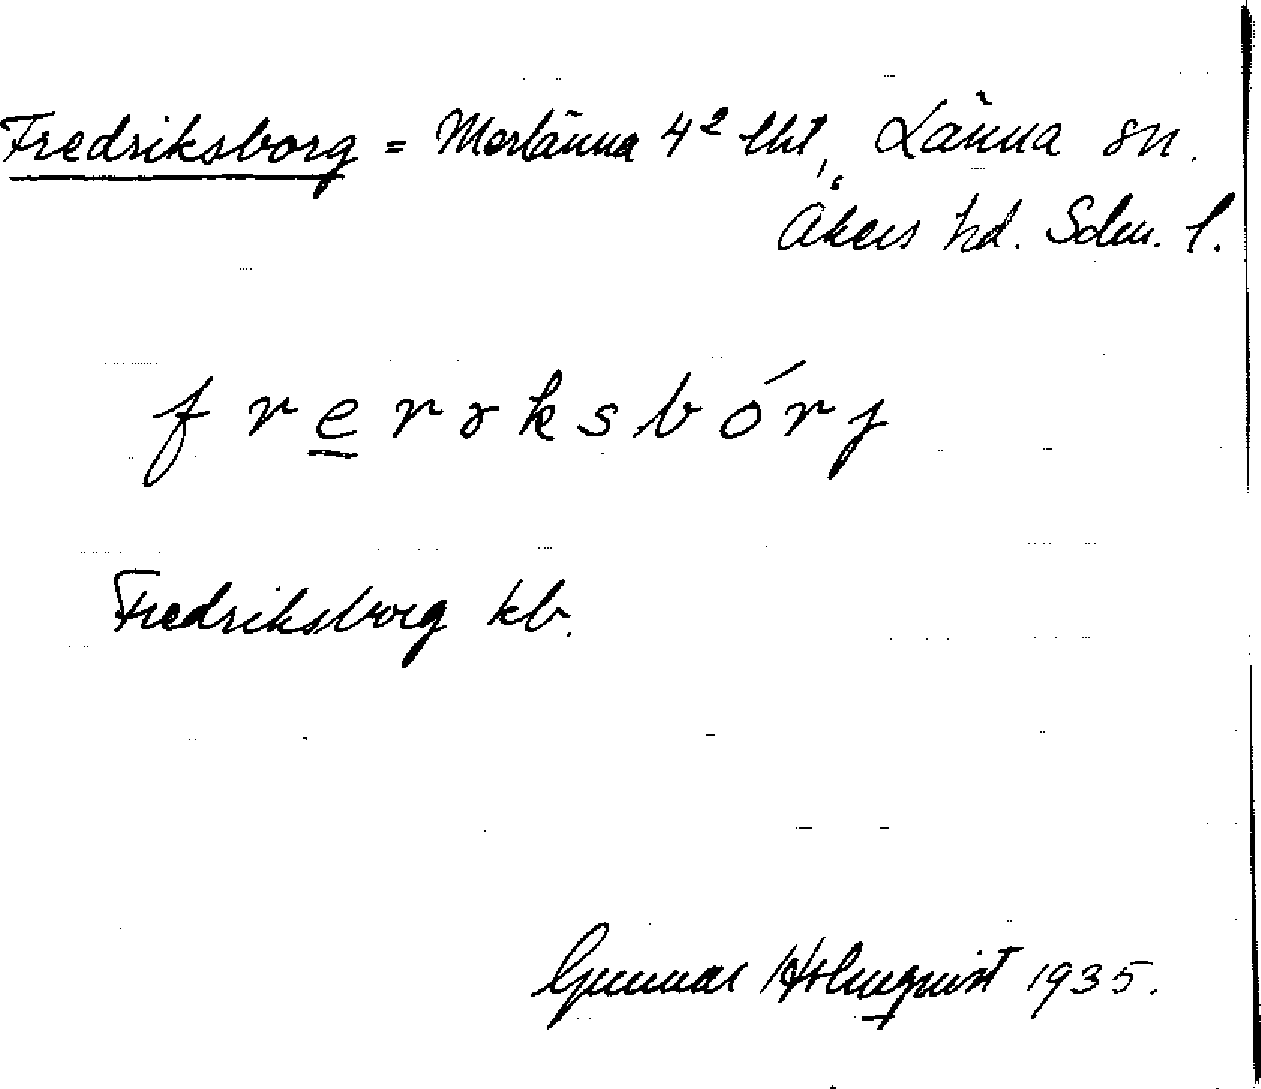 Fredriksborg = Merlänna 4² lht, Länna sn.
Åkers hd. Sdm. l.
f r e r ɤ k s b ó r j
Fredriksborg kb.
Gunnar Holmqvist 1935.